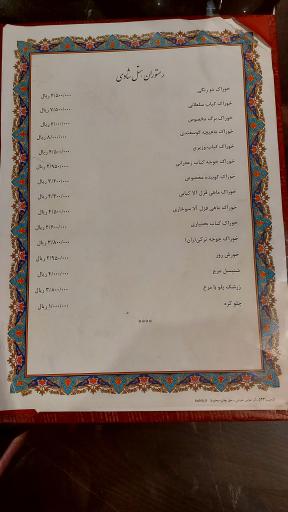 رستوران هتل شادی
خوراک دو رنگی ۴/۵۰۰/۰۰۰ ریال
خوراک کباب سلطانی ۷/۵۰۰/۰۰۰ ریال
خوراک برگ مخصوص ۶/۰۰۰/۰۰۰ ریال
خوراک ماهیچه گوسفندی ۸/۰۰۰/۰۰۰ ریال
خوراک کباب وزیری ۴/۵۰۰/۰۰۰ ریال
خوراک جوجه کباب زعفرانی ۳/۹۵۰/۰۰۰ ریال
خوراک کوبیده مخصوص ۳/۲۰۰/۰۰۰ ریال
خوراک ماهی قزل آلا کبابی ۴/۴۰۰/۰۰۰ ریال
خوراک ماهی قزل آلا سوخاری ۴/۵۰۰/۰۰۰ ریال
خوراک کباب بختیاری ۴/۶۰۰/۰۰۰ ریال
خوراک جوجه ترکی(ران) ۳/۸۰۰/۰۰۰ ریال
خورش روز ۲/۹۵۰/۰۰۰ ریال
شنیسل مرغ ۴/۰۰۰/۰۰۰ ریال
زرشک پلو با مرغ ۳/۸۰۰/۰۰۰ ریال
چلو کره ۱/۰۰۰/۰۰۰ ریال
****